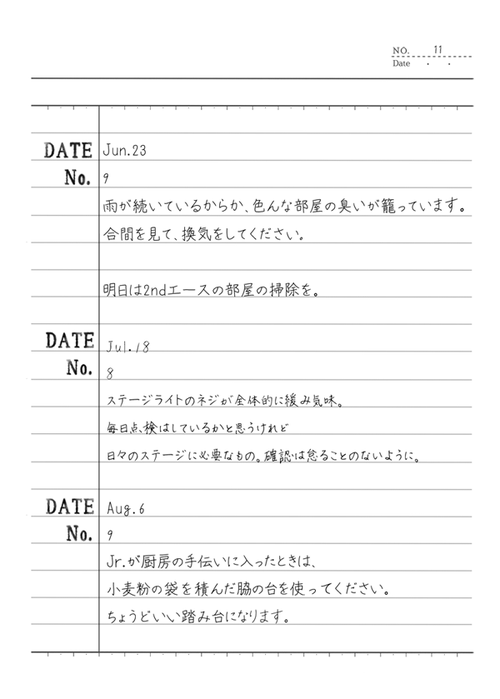 NO. 11
Date ・ ・
DATE Jun.23
No. 9
雨が続いているからか、色んな部屋の臭いが籠っています。
合間を見て、換気をしてください。
明日は2ndエースの部屋の掃除を。
DATE Jul.18
No. 8
ステージライトのネジが全体的に緩み気味。
毎日点検はしているかと思うけれど
日々のステージに必要なもの。確認は怠ることのないように。
DATE Aug.6
No. 9
Jr.が厨房の手伝いに入ったときは、
小麦粉の袋を積んだ脇の台を使ってください。
ちょうどいい踏み台になります。